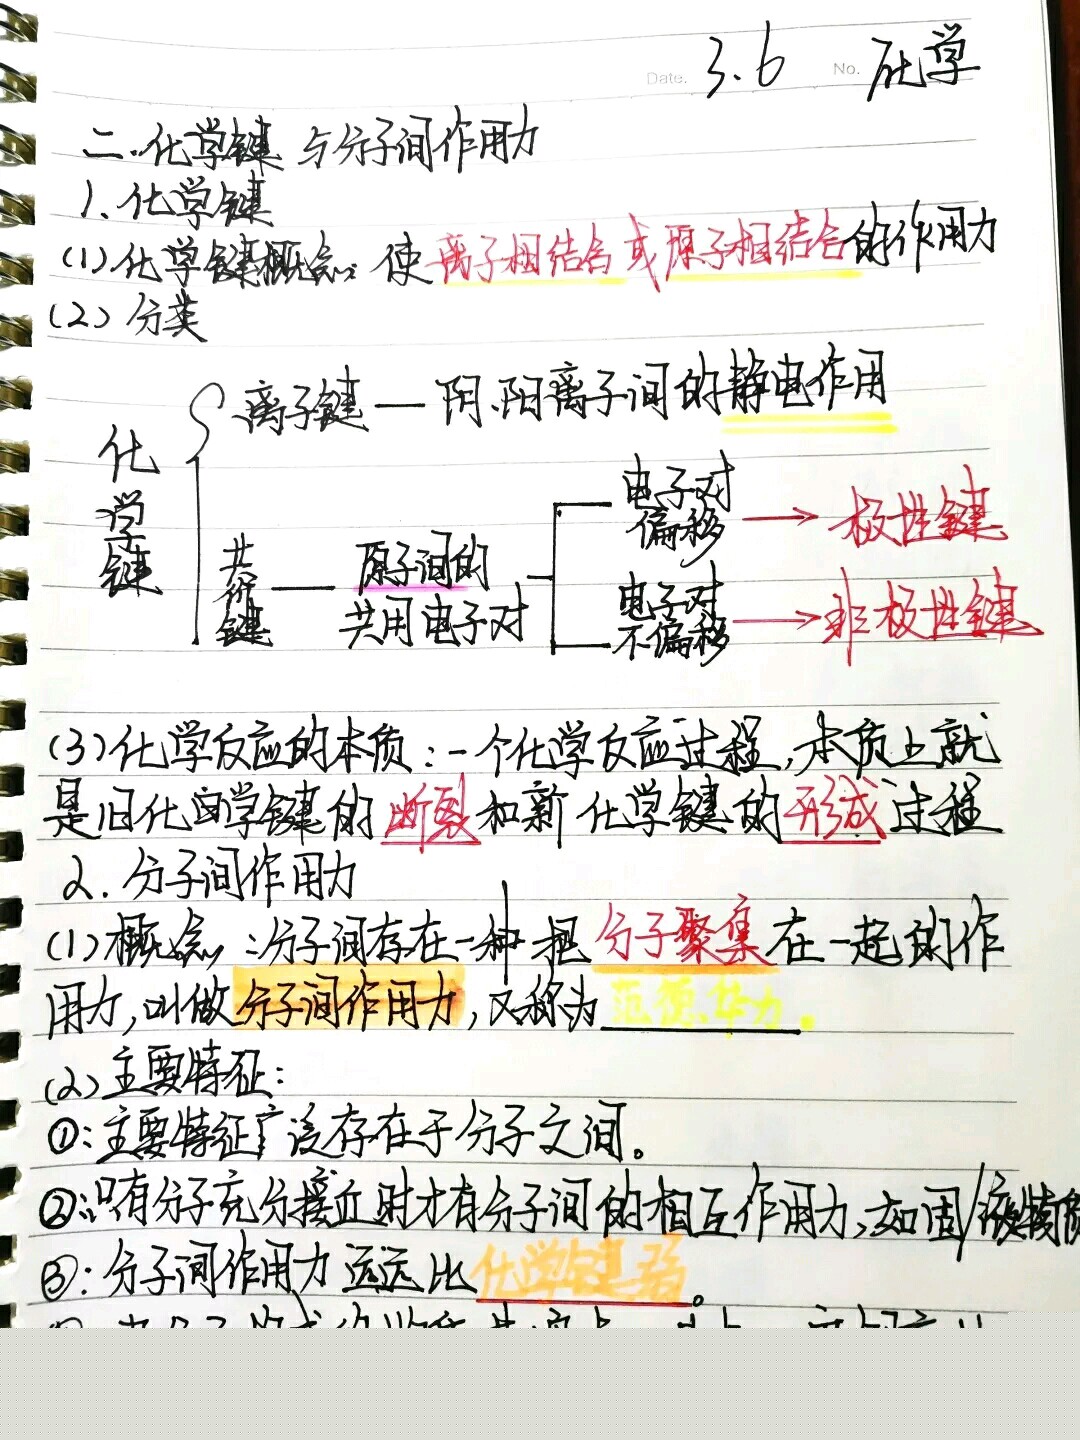 Date. 3.6 No. 化学
二.化学键与分子间作用力
1.化学键
(1)化学键概念:使离子相结合或原子相结合的作用力
(2)分类
离子键—阴、阳离子间的静电作用
化学键
共价键—原子间的共用电子对
电子对偏移→极性键
电子对不偏移→非极性键
(3)化学反应的本质:一个化学反应过程,本质上就
是旧化学键的断裂和新化学键的形成过程
2.分子间作用力
(1)概念:分子间存在一种把分子聚集在一起的作
用力,叫做分子间作用力,又称为范德华力。
(2)主要特征:
①:主要特征广泛存在于分子之间。
②:只有分子充分接近时才有分子间的相互作用力,如固/液
③:分子间作用力远远比化学键弱。